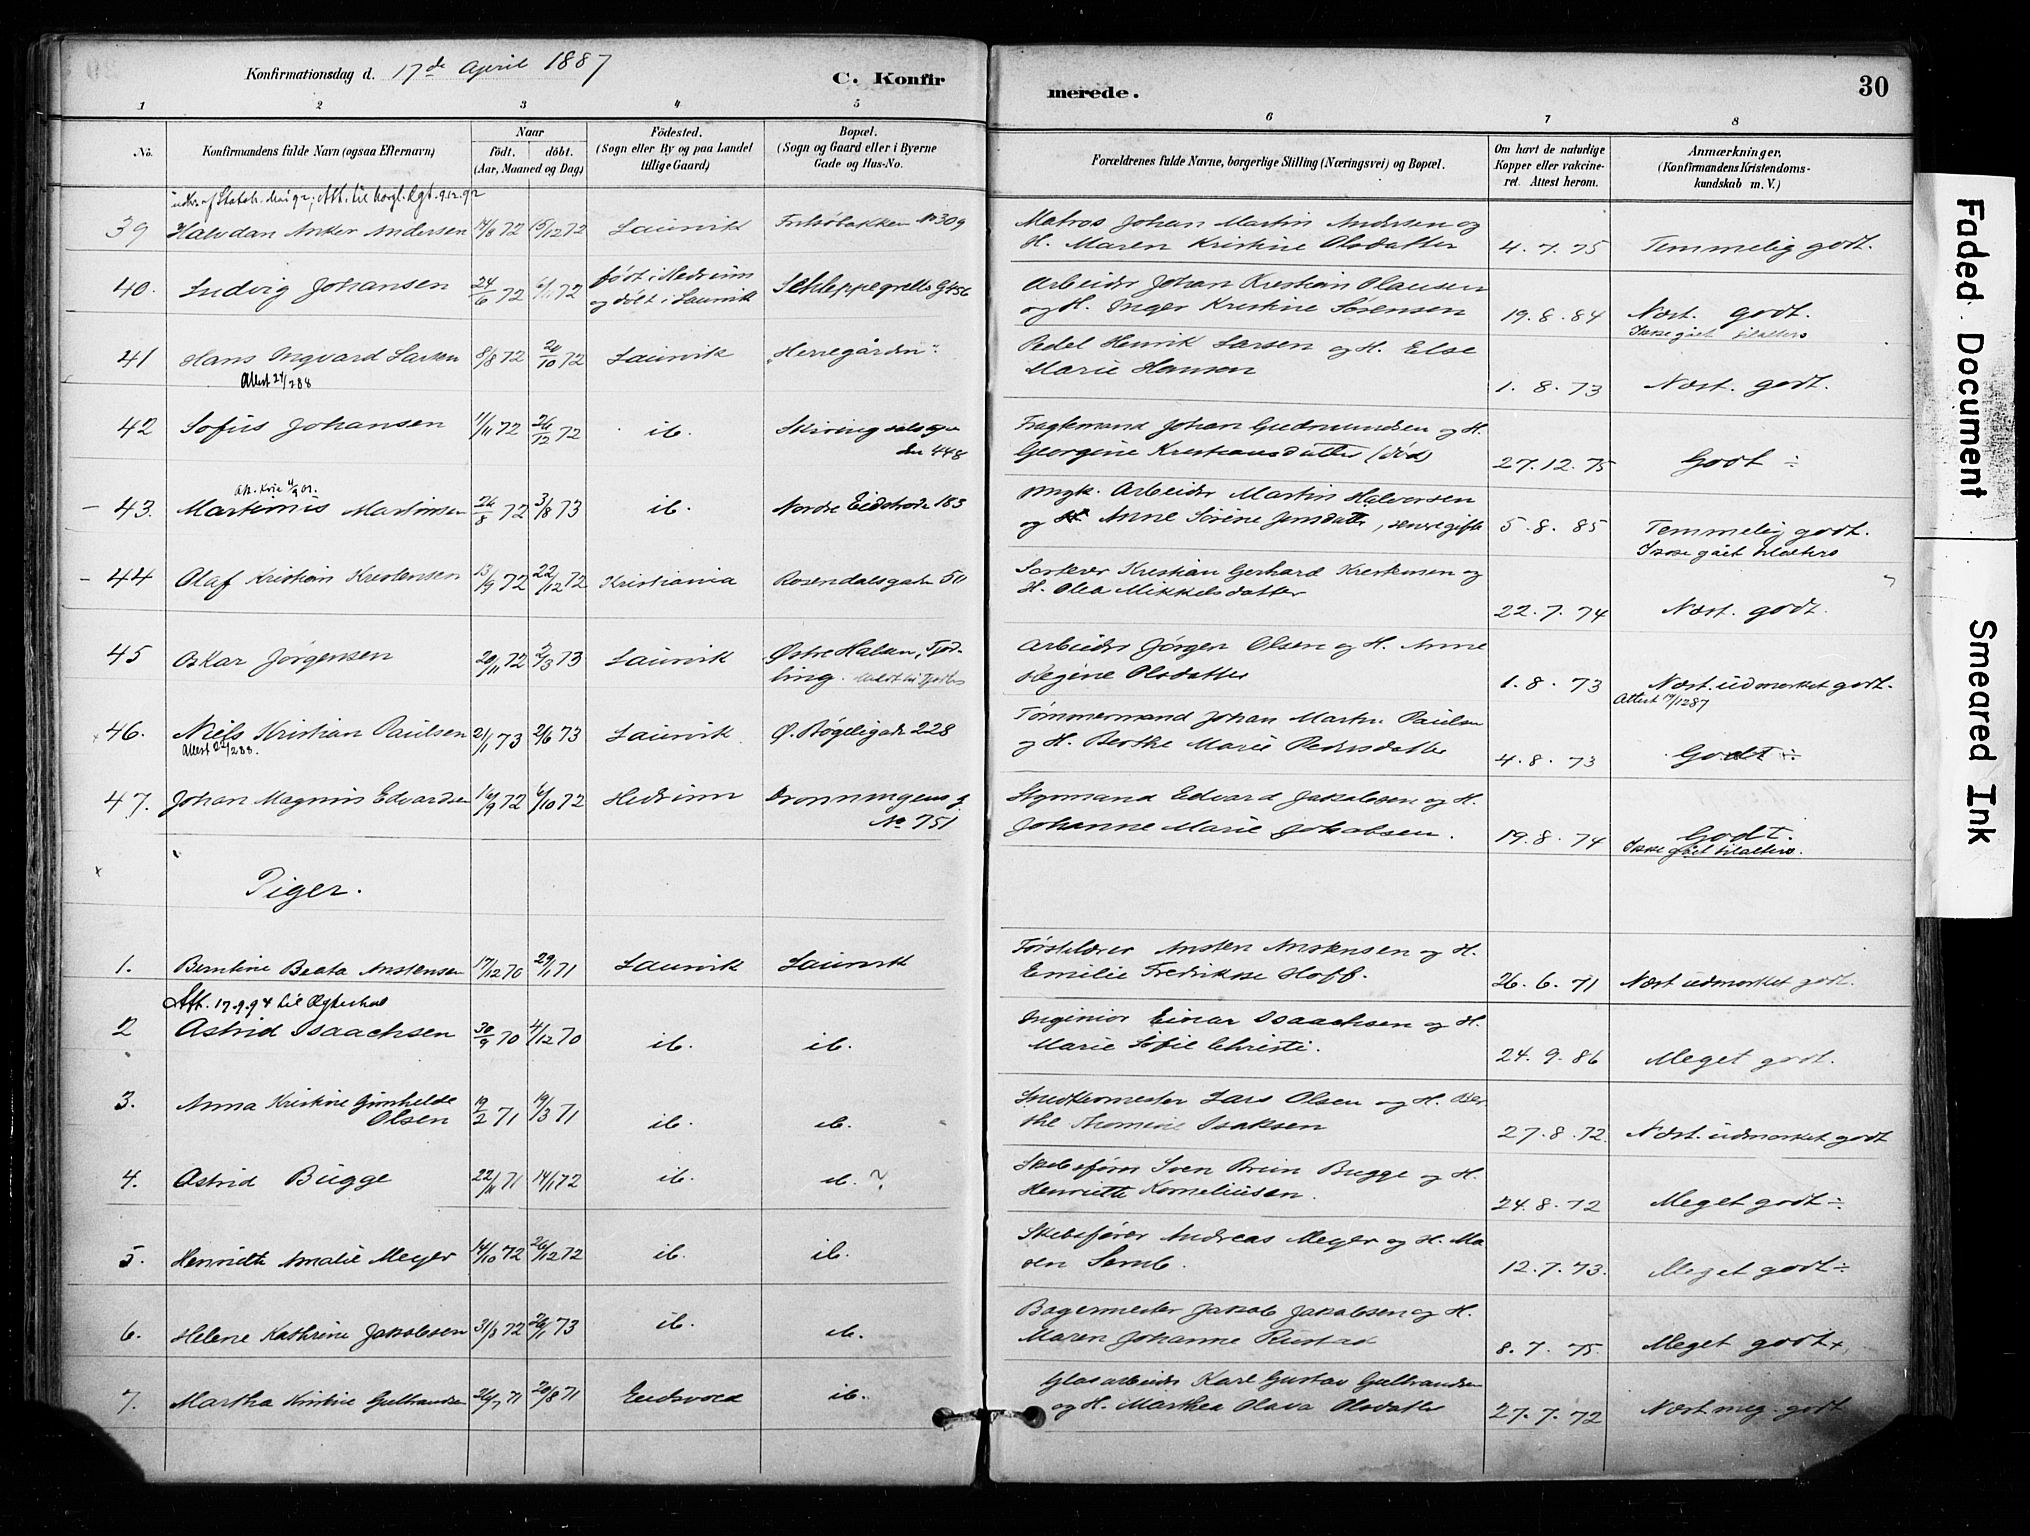 Konfirmationsdag d. 17de April 1887
C. Konfir
merede.
30
1 2 3 4 5 6 7 8
No.
Konfirmandens fulde Navn (ogsaa Efternavn)
Naar
födt. döbt.
(Aar, Maaned og Dag)
Födested.
(Sogn eller By og paa Landet
tillige Gaard)
Bopæl.
(Sogn og Gaard eller i Byerne
Gade og Hus-No.
Forældrenes fulde Navne, borgerlige Stilling (Næringsvei) og Bopæl.
Om havt de naturlige
Kopper eller vakcine-
ret. Attest herom.
Anmærkninger,
(Konfirmandens Kristendoms-
kundskab m. V.)
39 Halvdan Anker Andersen 14/8 72 15/12 72 Laurvik No 309
Matros Johan Martin Andersen og
H. Maren Kristine Olsdatter 4.7.75 Temmelig godt.
40. Ludvig Johansen 24/6 72 6/11 72 født i Hedrum
og döbt i Laurvik Schleppegrells G 456
Arbeider Johan Kristian Olausen
og H. Inger Kristine Sørensen 19.8.84 Næst. godt.
Ikke gået tilalters
41 Hans Ingvard Larsen 8/8 72 20/10 72 Laurvik "Herregården".
Attest 24/2 88
Pedel Henrik Larsen og H. Else
Marie Hansen 1.8.73 Næst. godt.
42 Sofus Johansen 11/11 72 26/12 72 ib.
448
Fragtemand Johan Gudmundsen og H.
Georgine Kristiansdatter (död) 27.12.75 Godt ÷
- 43. Martinius Martinsen 26/8 72 3/8 73 ib. Nordre 183
Ungk. Arbeider Martin Halvorsen
og Anne Sørine Jensdatter, senere gifte 5.8.85 Temmelig godt.
Ikke gået tilalters
- 44 Olaf Kristian Kristensen 13/9 72 22/12 72 Kristiania Rosendalsgade 511
Kristian Gerhard Kristensen og
H. Olea Mikkelsdatter 22.7.74 Næst. godt.
45 Oskar Jørgensen 20/11 72 2/3 73 Laurvik Østre Halsen, Tjöd-
ling.
Arbeider Jörgen Olsen og H. Anne
Regine Olsdatter 1.8.73 Næst. udmerket godt.
Attest 17/12 87
46. Niels Kristian Paulsen 2/1 73 2/6 73 Laurvik Ø. Bøgeligade 228
Attest 22/2 88.
Tömmermand Johan Martin Paulsen
og H. Berthe Marie Pedersdatter 4.8.73 Godt ÷
47. Johan Magnus Edvardsen 16/9 72 6/10 72 Hedrum Dronningens g.
No 751
Styrmand Edvard Jakobsen og H.
Johanne Marie Jakobsen. 19.8.74 Godt.
Ikke gået tilalters.
Piger.
1. Berntine Beata Anstensen 17/12 70 29/1 71 Laurvik Laurvik
Ansten Anstensen og H.
Emilie Fredrikke Hoff. 26.6.71 Næst udmerket godt.
Att. 17.9.94 til Ægteskab
2 Astrid Isaachsen 30/9 70 4/12 70 ib. ib.
Ingeniør Einar Isaachsen og H.
Marie Sofie Christi. 24.9.86 Meget godt.
3. Anna Kristine Gunhilde
Olsen 19/2 71 19/3 71 ib. ib.
Snedkermester Lars Olsen og H. Ber
the Isaksen 27.8.72. Næst. udmerket godt
4. Astrid Bugge 22/11 71 14/1 72 ib. ib. ?
Skibsfører Sven Brun Bugge og H.
Henriette Korneliussen. 24.8.72 Meget godt ÷
5. Henriette Amalie Meyer 14/10 72 26/12 72 ib. ib.
Skibsfører Andreas Meyer og H. Ma
ren Semb. 12.7.73. Meget godt ÷
6. Helene Kathrine Jakobsen 31/8 72 26/1 73 ib. ib.
Bagermester Jakob Jakobsen og H.
Maren Johanne Rustad 8.7.75. Meget godt +
7. Martha Kristine Gulbrandsen 26/7 71 20/8 71 Eidsvold ib.
Glasarbeider Karl Gustav Gulbrandsen
og H. Marthea Olava Olsdatter 27.7.72 Næst meg. godt
Faded Document
Smeared Ink